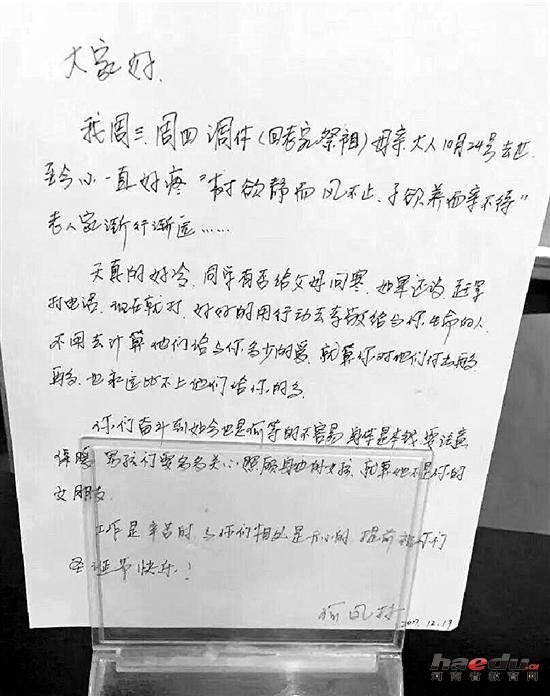 大家好.
我周三、周四调休(回老家祭祖)母亲大人10月24号去世
至今心一直好疼“树欲静而风不止,子欲养而亲不待”
老人家渐行渐远……
天真的好冷,同学有否给父母问寒,如果还没,赶紧
打电话,现在就打,好好的用行动去孝敬给与你生命的人,
不用去计算他们给与你多少的爱,就算你对他们付出再多
再多,也永远比不上他们给你的多
你们奋斗到如今也是何等的不容易,身体是本钱,要注意
保暖,男孩们要多多关心照顾身边的女孩,就算她不是你的
女朋友.
工作是辛苦的,与你们相处是开心的,提前祝你们
圣诞节快乐!
2017.12.19
haedu.cn
河南省教育网